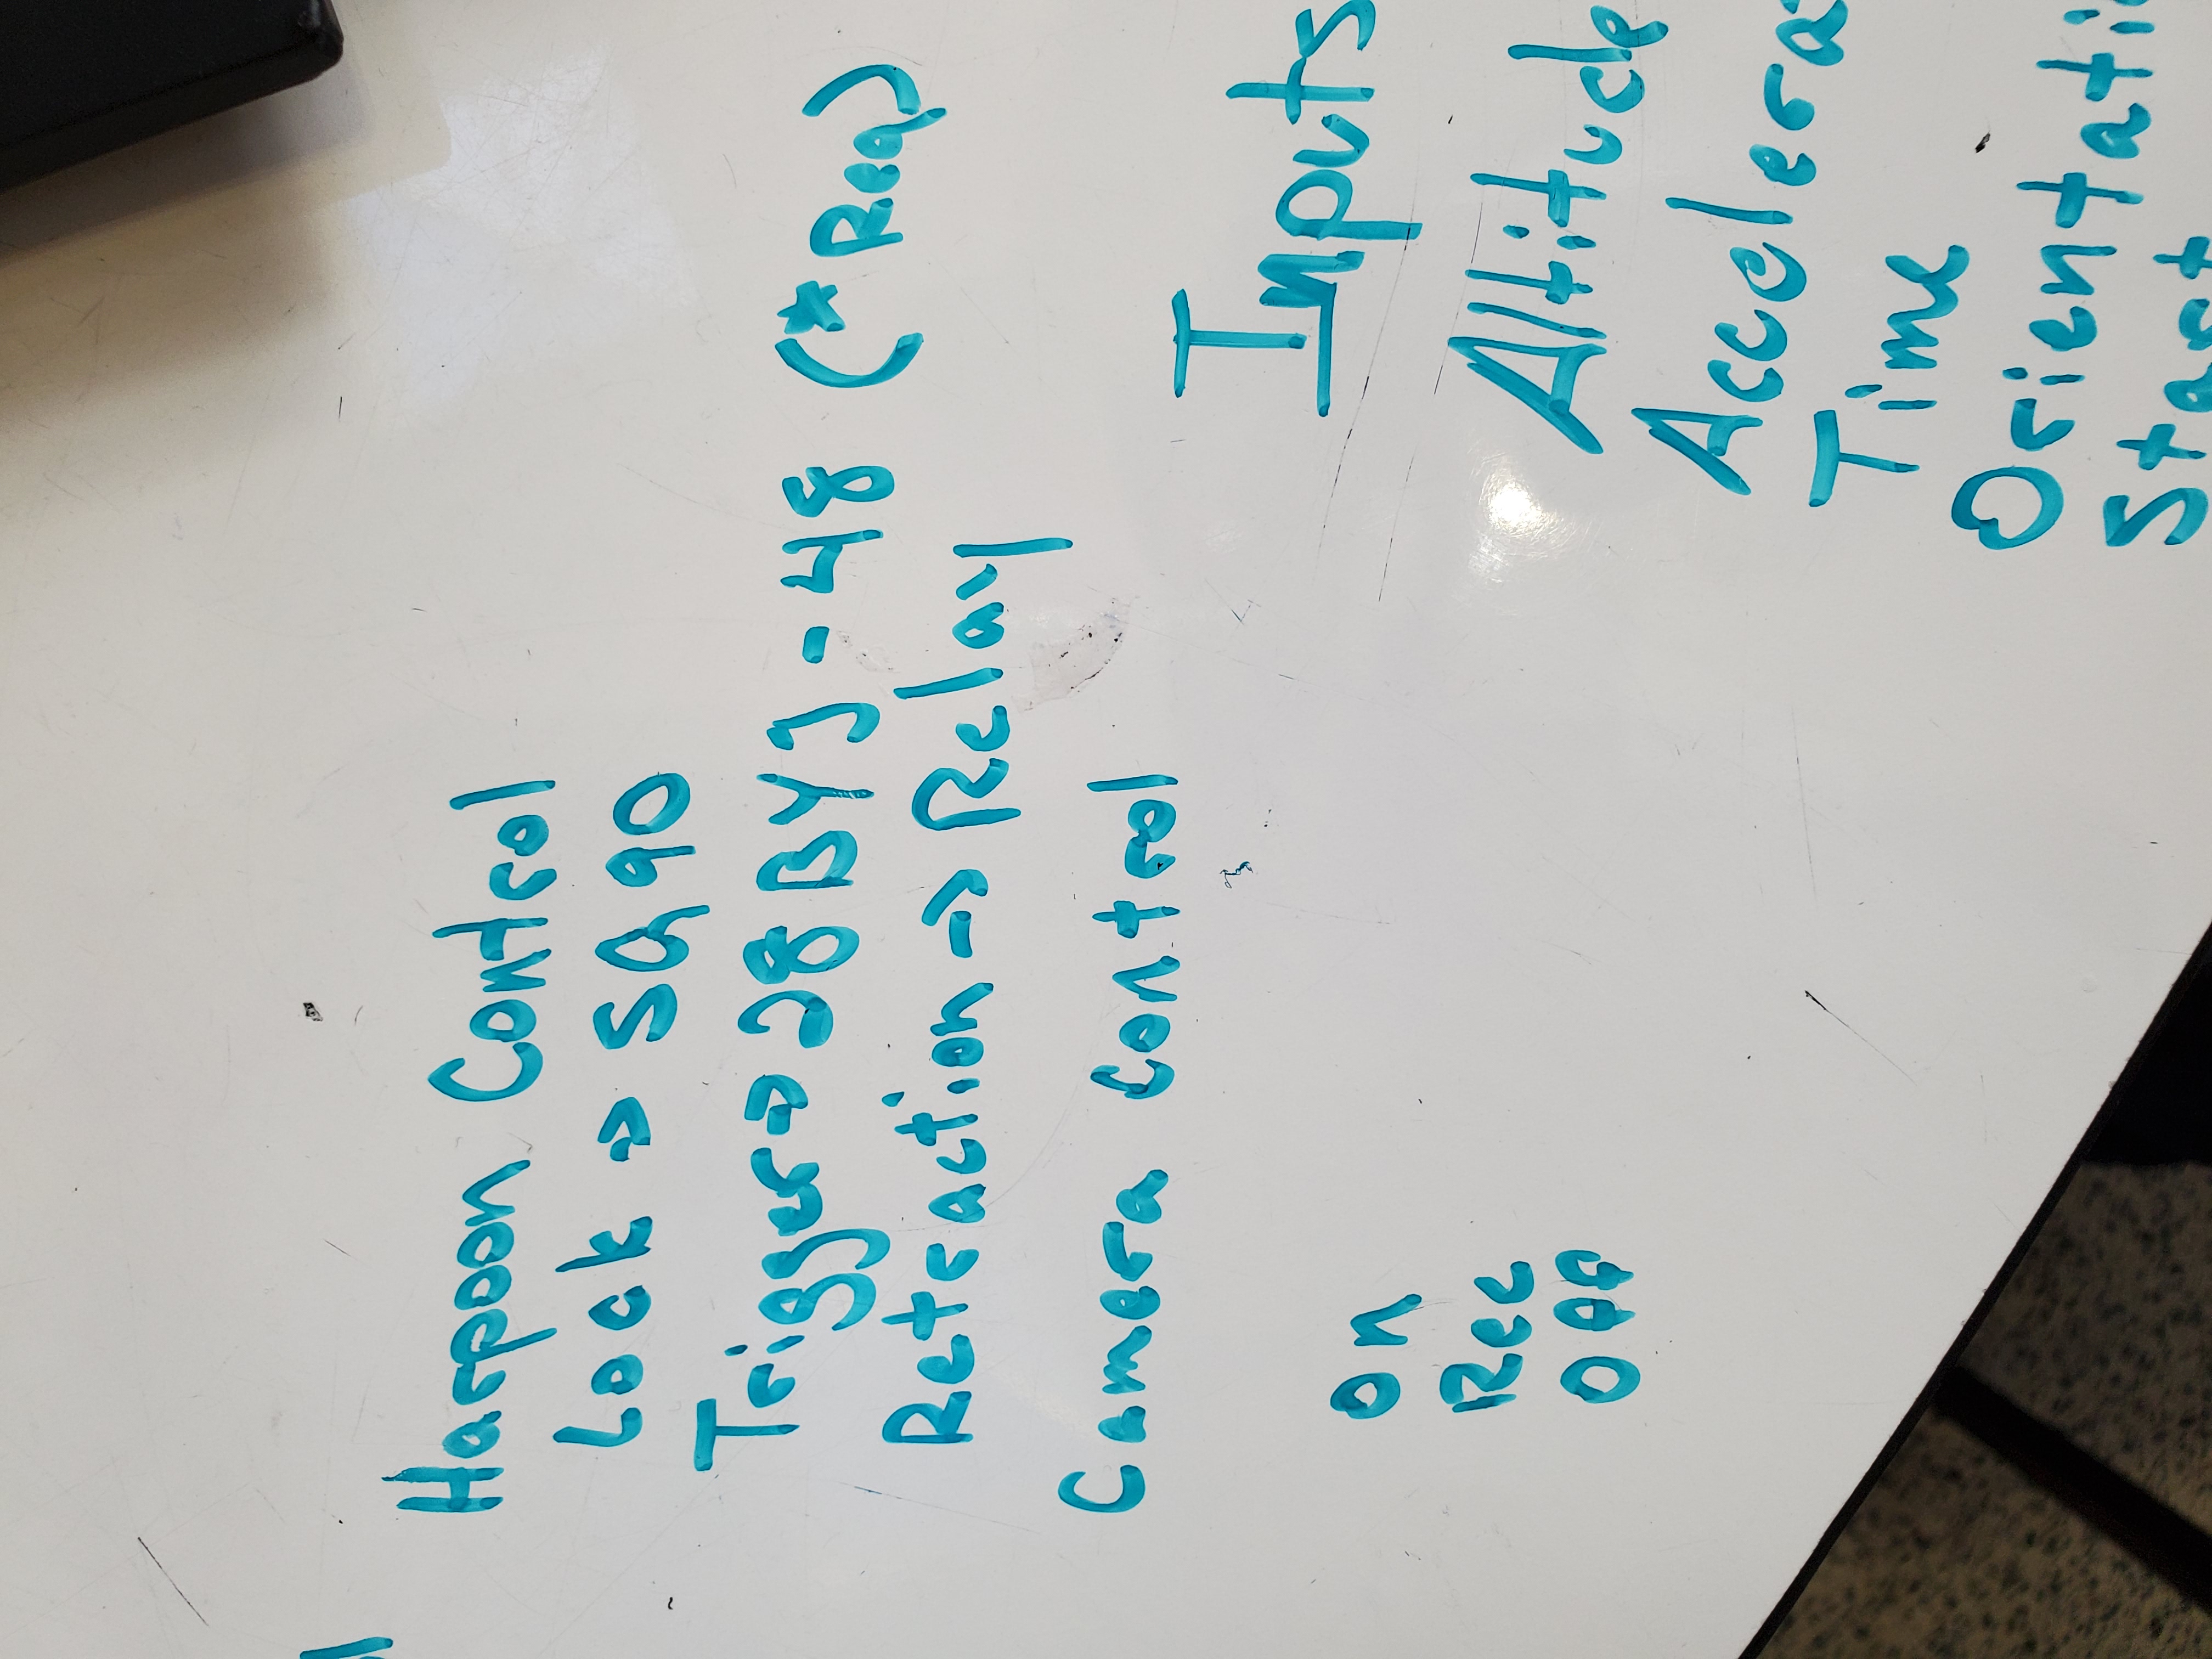 Harpoon Control
Lock → SG90
Trigger → 28BYJ-48 (*Req)
Retraction → Relay
Camera Control
On
Rec
Off
Inputs
Altitude
Accelera
Time
Orientati
Start